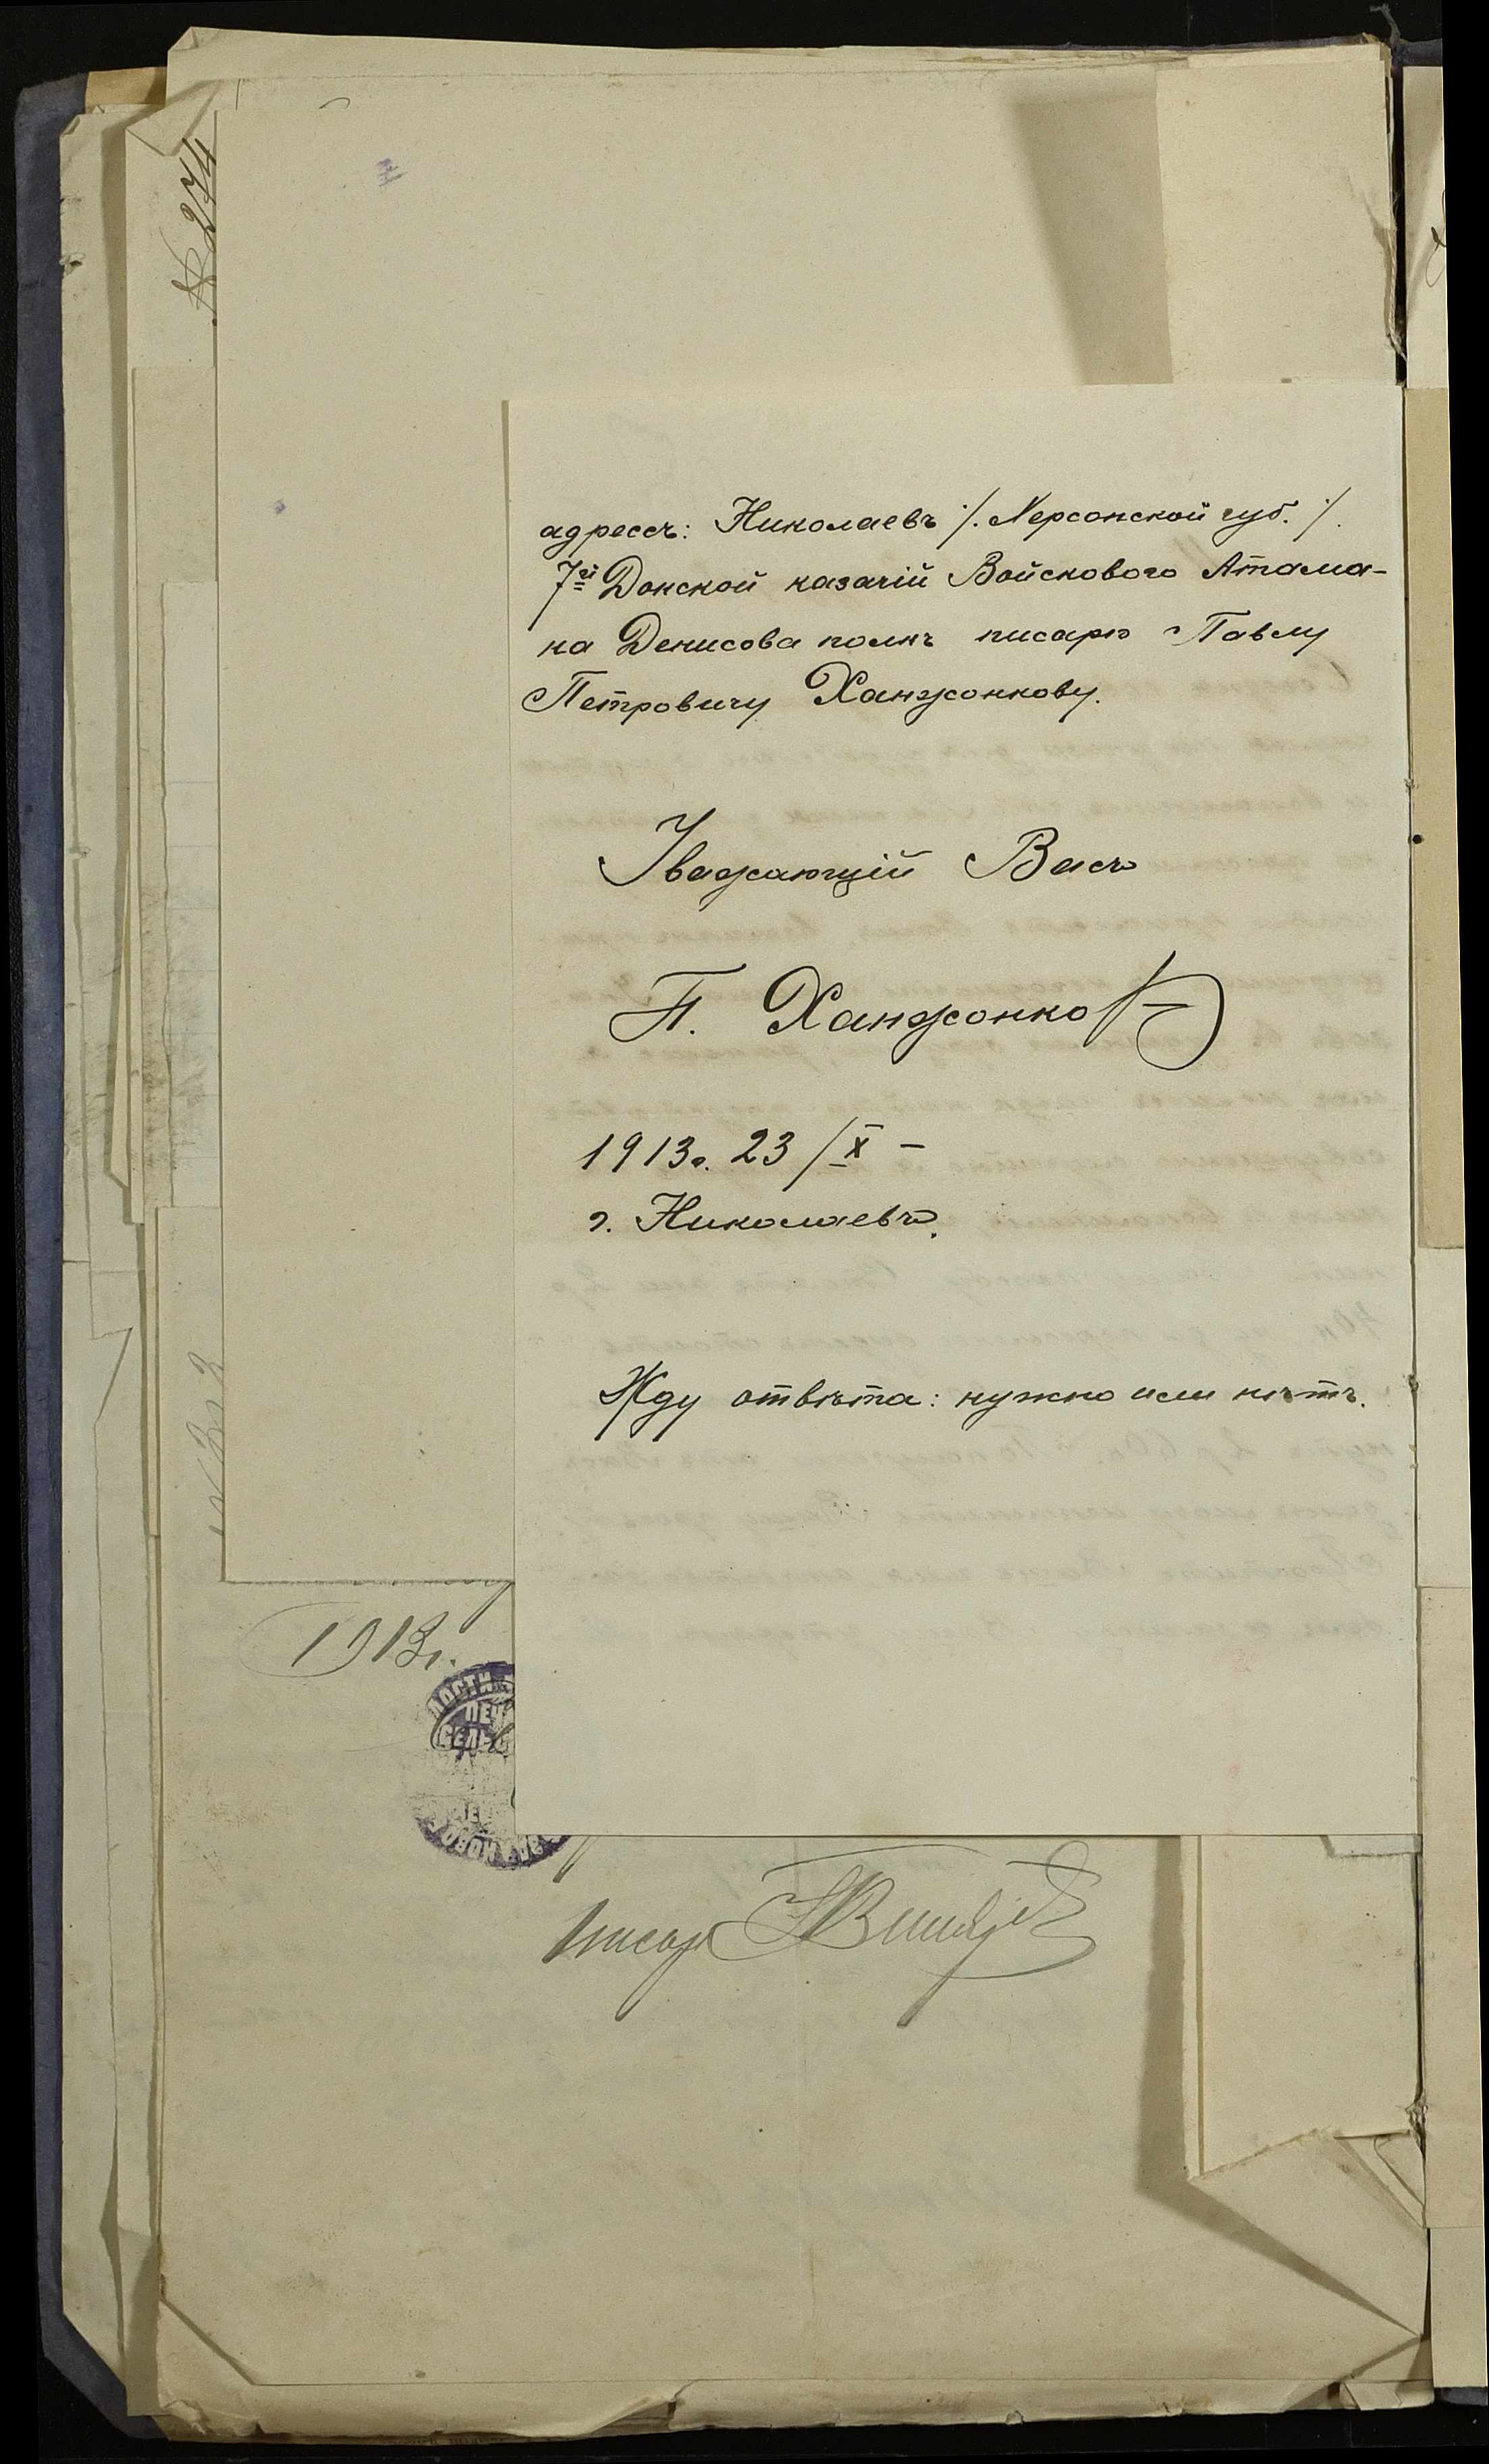 № 274
адрессъ: Николаевъ /. Херсонской губ. /.
7й Донской казачій Войскового Атама-
на Денисова полкъ писарю Павлу
Петровичу Ханжонкову.
Уважающій Васъ
П. Ханжонковъ
1913г. 23/X –
г. Николаевъ.
Жду отвѣта: нужно или нѣтъ.
1913г.
Писарь